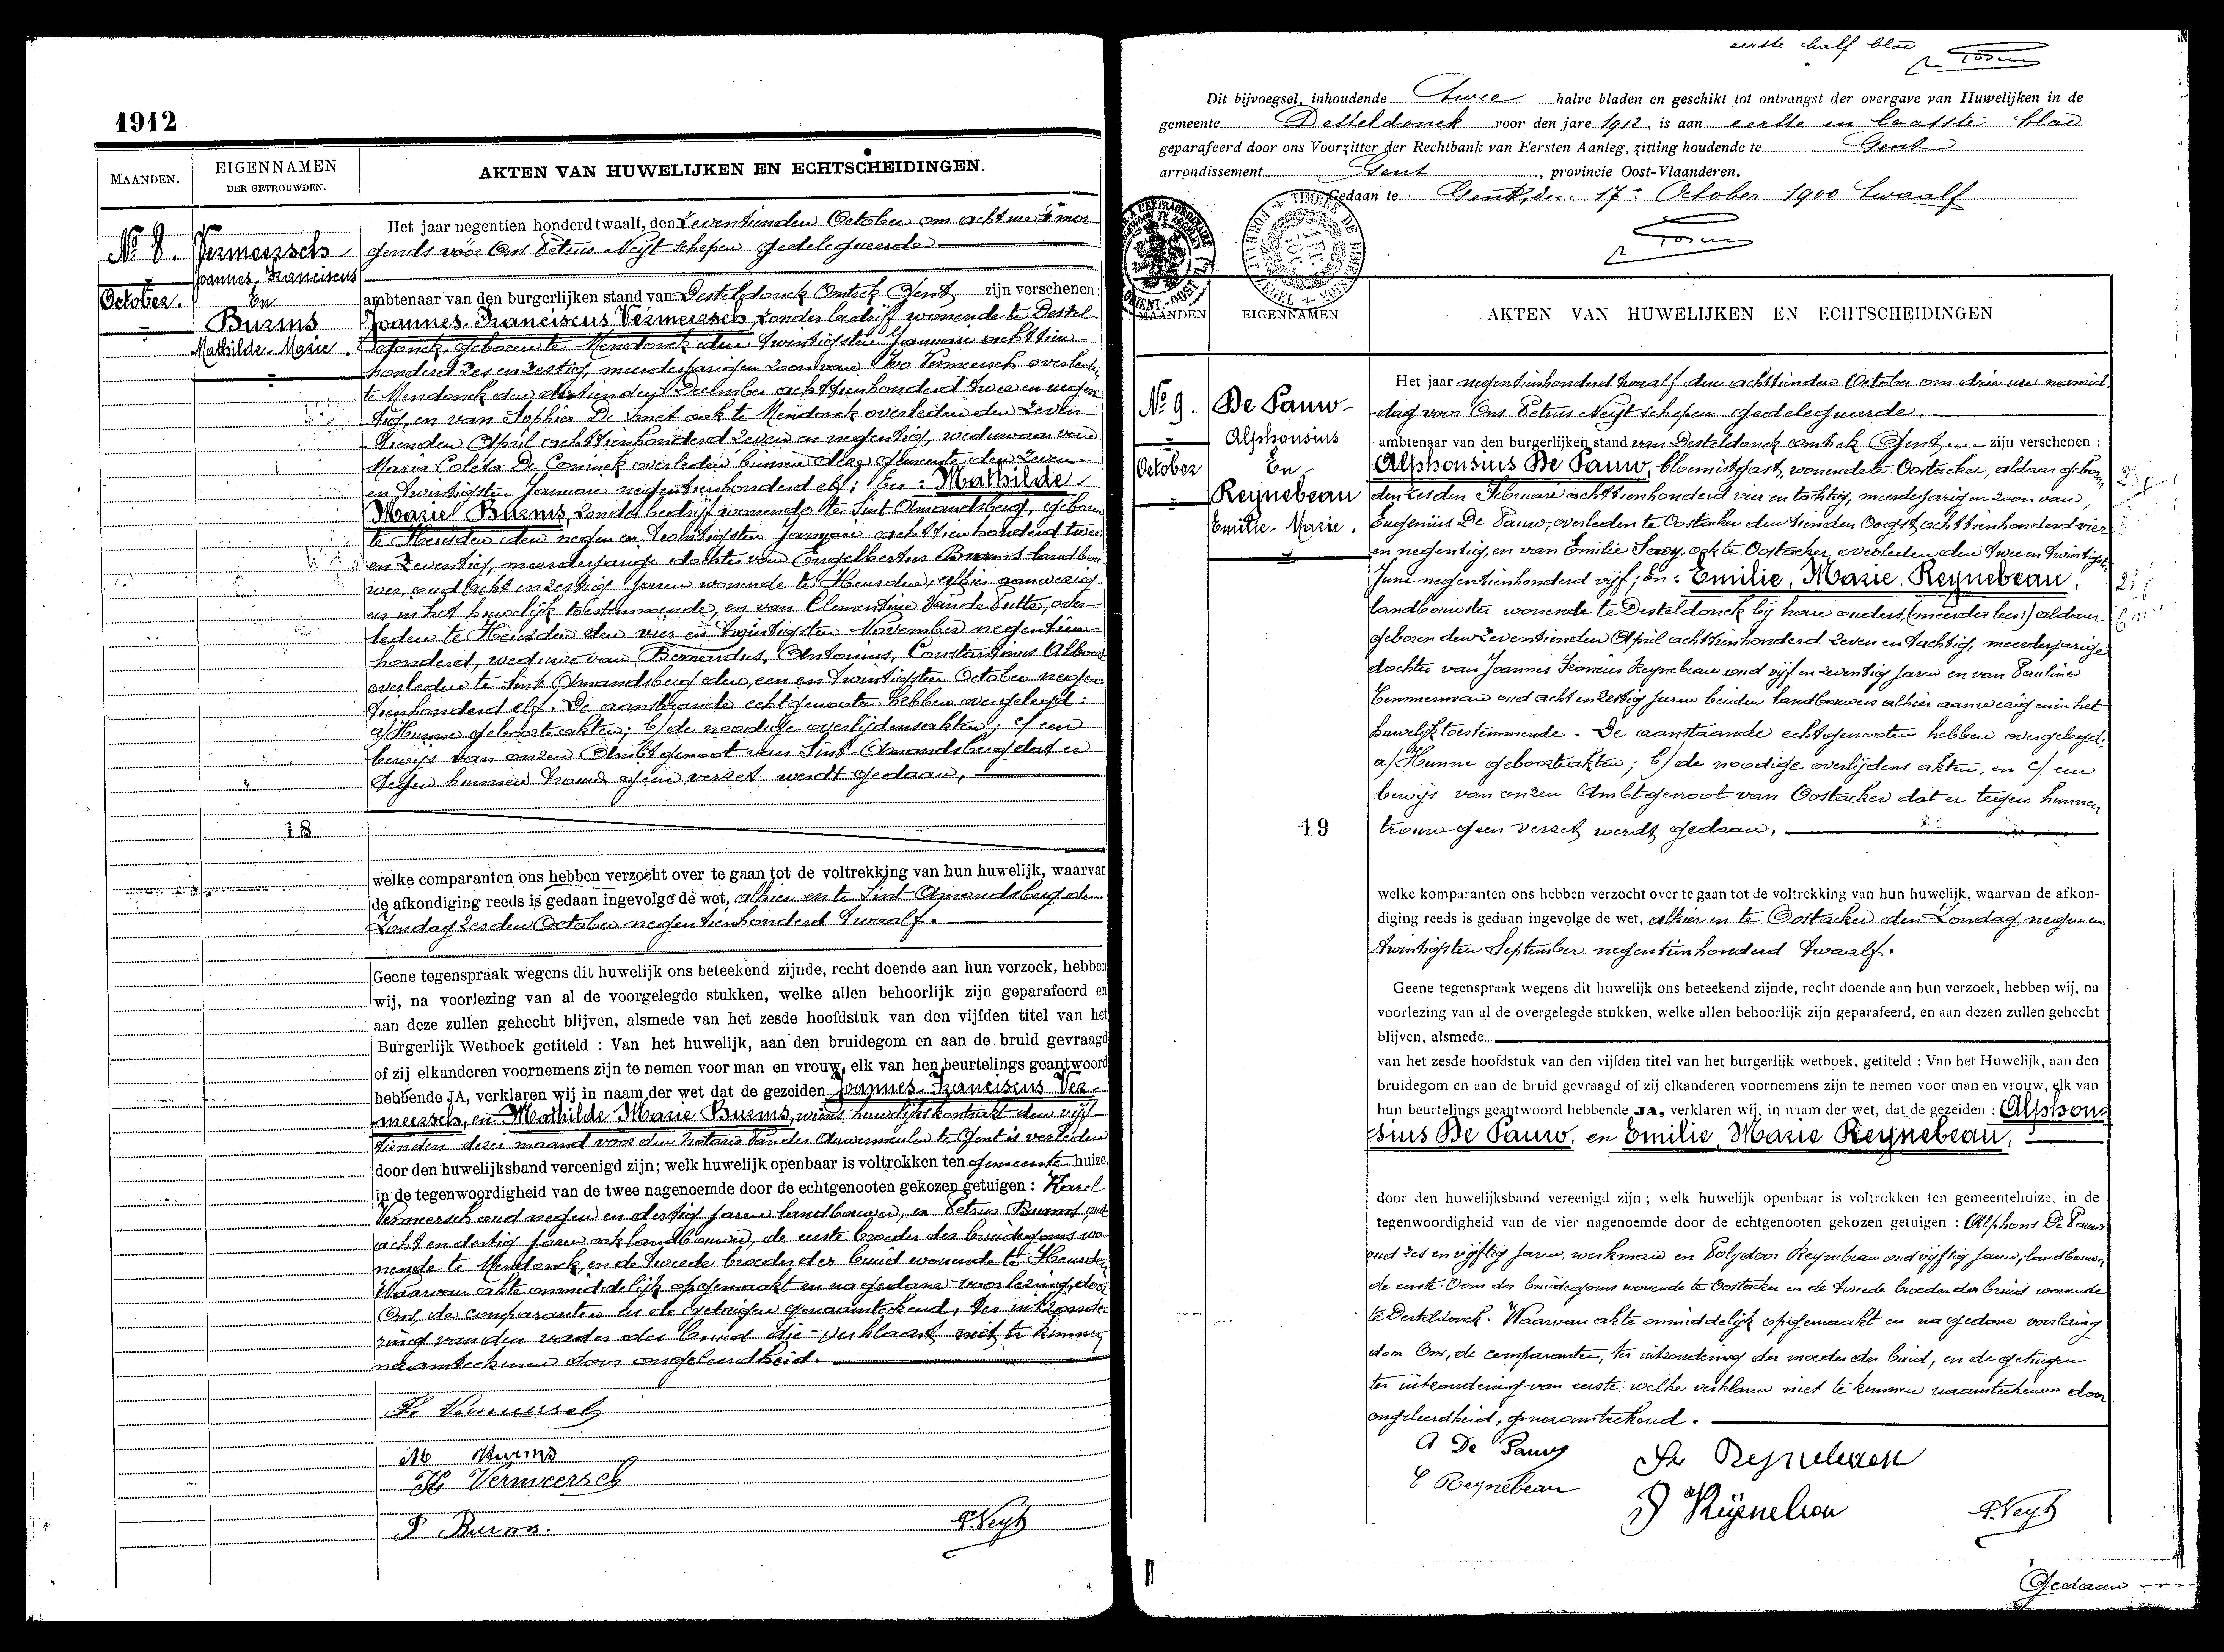 1912
MAANDEN.
EIGENNAMEN
DER GETROUWDEN.
AKTEN VAN HUWELIJKEN EN ECHTSCHEIDINGEN.
Nº 8.
October.
Vermeersch
Joannes-Franciscus
En
Burms
Mathilde-Marie.
18
Het jaar negentien honderd twaalf, den Zeventienden October om acht ure 's mor-
gends vóór Ons Petrus Neyt schepen gedelegueerde
ambtenaar van den burgerlijken stand van Desteldonck Omtrek Gent zijn verschenen:
Joannes-Franciscus Vermeersch, zonder bedrijf wonende te Destel-
donck, geboren te Mendonck den twintigsten Januari achttien-
honderd zes en zestig, meerderjarigen zoon van Ivo Vermeersch overleden
te Mendonck den dertienden December achttienhonderd twee en negen-
tig, en van Sophia De Smet ook te Mendonck overleden den zeven-
tienden April achttienhonderd zeven en negentig, weduwaar van
Maria Coleta De Coninck overleden binnen deze gemeente den zeven-
en twintigsten Januari negentienhonderd elf; En: Mathilde
Marie Burms, zonder bedrijf wonende te Sint Amandsberg, geboren
te Heusden den negen en twintigsten Januari achttienhonderd twee
en zeventig, meerderjarige dochter van Engelbertus Burms landbou-
wer, oud acht en zestig jaren wonende te Heusden, alhier aanwezig
en in het huwelijk toestemmende, en van Clementine Van de Putte, over-
leden te Heusden den vier en twintigsten November negentien-
honderd, weduwe van Bernardus, Antonius, Constantinus Alboort
overleden te Sint Amandsberg den een en twintigsten October negen-
tienhonderd elf. De aanstaande echtgenooten hebben overgelegd:
a/ Hunne geboorteakten; b/ de noodige overlijdensakten; c/ een
bewijs van onzen Ambtgenoot van Sint Amandsberg dat er
tegen hunnen trouw geen verzet werdt gedaan,
welke comparanten ons hebben verzocht over te gaan tot de voltrekking van hun huwelijk, waarvan
de afkondiging reeds is gedaan ingevolge de wet, alhier en te Sint Amandsberg den
Zondag zesden October negentienhonderd twaalf.
Geene tegenspraak wegens dit huwelijk ons beteekend zijnde, recht doende aan hun verzoek, hebben
wij, na voorlezing van al de voorgelegde stukken, welke allen behoorlijk zijn geparafeerd en
aan deze zullen gehecht blijven, alsmede van het zesde hoofdstuk van den vijfden titel van het
Burgerlijk Wetboek getiteld : Van het huwelijk, aan den bruidegom en aan de bruid gevraagd
of zij elkanderen voornemens zijn te nemen voor man en vrouw, elk van hen beurtelings geantwoord
hebbende JA, verklaren wij in naam der wet dat de gezeiden Joannes-Franciscus Ver-
meersch, en Mathilde Marie Burms, wiens huwelijkskontrakt den vijf-
tienden dezer maand voor den notaris Van der Auwermeulen te Gent is verleden
door den huwelijksband vereenigd zijn; welk huwelijk openbaar is voltrokken ten gemeente huize,
in de tegenwoordigheid van de twee nagenoemde door de echtgenooten gekozen getuigen : Karel
Vermeersch oud negen en dertig jaren landbouwer, en Petrus Burms oud
acht en dertig jaren ook landbouwer, de eerste broeder des bruidegoms wo-
nende te Mendonck, en de tweede broeder der bruid wonende te Heusden.
Waarvan akte onmiddelijk opgemaakt en na gedane voorlezing, door
Ons, de comparanten en de getuigen genaamteekend, ter uitzonde-
ring van den vader der bruid die verklaart niet te kunnen
naamteekenen door ongeleerdheid.
Fr Vermeersch
M Burms
K Vermeersch
P Burms.
P. Neyt
eerste half blad
Dit bijvoegsel, inhoudende twee halve bladen en geschikt tot ontvangst der overgave van Huwelijken in de
gemeente Desteldonck voor den jare 1912, is aan eerste en laatste blad
geparafeerd door ons Voorzitter der Rechtbank van Eersten Aanleg, zitting houdende te Gent
arrondissement Gent, provincie Oost-Vlaanderen.
Gedaan te Gent, den 17n October 1900 twaalf
MAANDEN
EIGENNAMEN
AKTEN VAN HUWELIJKEN EN ECHTSCHEIDINGEN
Nº 9.
October
De Pauw-
Alphonsius
En
Reynebeau
Emilie-Marie.
19
Het jaar negentienhonderd twaalf den achttienden October om drie ure namid-
dag voor Ons Petrus Neyt schepen gedelegueerde.
ambtenaar van den burgerlijken stand van Desteldonck omtrek Gent zijn verschenen :
Alphonsius De Pauw, bloemistgast, wonende te Oostacker, aldaar geboren
den zesden Februari achttienhonderd vier en tachtig, meerderjarigen zoon van
Eugenius De Pauw, overleden te Oostacker den tienden Oogst achttienhonderd vier
en negentig, en van Emilie Savoy, ook te Oostacker overleden den twee en twintigsten
Juni negentienhonderd vijf; En: Emilie, Marie, Reynebeau,
landbouwster wonende te Desteldonck bij hare ouders, (meerder lees:) aldaar
geboren den zeventienden April achttienhonderd zeven en tachtig, meerderjarige
dochter van Joannes Francies Reynebeau oud vijf en zeventig jaren en van Pauline
Temmerman oud acht en zestig jaren beiden landbouwers alhier aanwezig en in het
huwelijk toestemmende. De aanstaande echtgenooten hebben overgelegd:
a/ Hunne geboorteakten; b/ de noodige overlijdens akten, en c/ een
bewijs van onzen Ambtgenoot van Oostacker dat er teegen hunnen
trouw geen verzet werdt gedaan,
welke komparanten ons hebben verzocht over te gaan tot de voltrekking van hun huwelijk, waarvan de afkon-
diging reeds is gedaan ingevolge de wet, alhier en te Oostacker den Zondag negen en
twintigsten September negentienhonderd twaalf.
Geene tegenspraak wegens dit huwelijk ons beteekend zijnde, recht doende aan hun verzoek, hebben wij, na
voorlezing van al de overgelegde stukken, welke allen behoorlijk zijn geparafeerd, en aan dezen zullen gehecht
blijven, alsmede
van het zesde hoofdstuk van den vijfden titel van het burgerlijk wetboek, getiteld : Van het Huwelijk, aan den
bruidegom en aan de bruid gevraagd of zij elkanderen voornemens zijn te nemen voor man en vrouw, elk van
hun beurtelings geantwoord hebbende JA, verklaren wij, in naam der wet, dat de gezeiden : Alphon-
sius De Pauw, en Emilie, Marie Reynebeau,
door den huwelijksband vereenigd zijn ; welk huwelijk openbaar is voltrokken ten gemeentehuize, in de
tegenwoordigheid van de vier nagenoemde door de echtgenooten gekozen getuigen : Alphons De Pauw
oud zes en vijftig jaren, werkman en Polydoor Reynebeau oud vijftig jaren, landbouwer,
de eerste Oom des bruidegoms wonende te Oostacker en de tweede broeder der bruid wonende
te Desteldonck. Waarvan akte onmiddelijk opgemaakt en na gedane voorlezing
door Ons, de comparanten, ter uitzondering der moeder der bruid, en de getuigen
ter uitzondering van eerste welke verklaren niet te kunnen naamteekenen door
ongeleerdheid, genaamteekend.
A De Pauw
E Reynebeau
Fr Reynebeau
P Reynebeau
P. Neyt
Gedaan